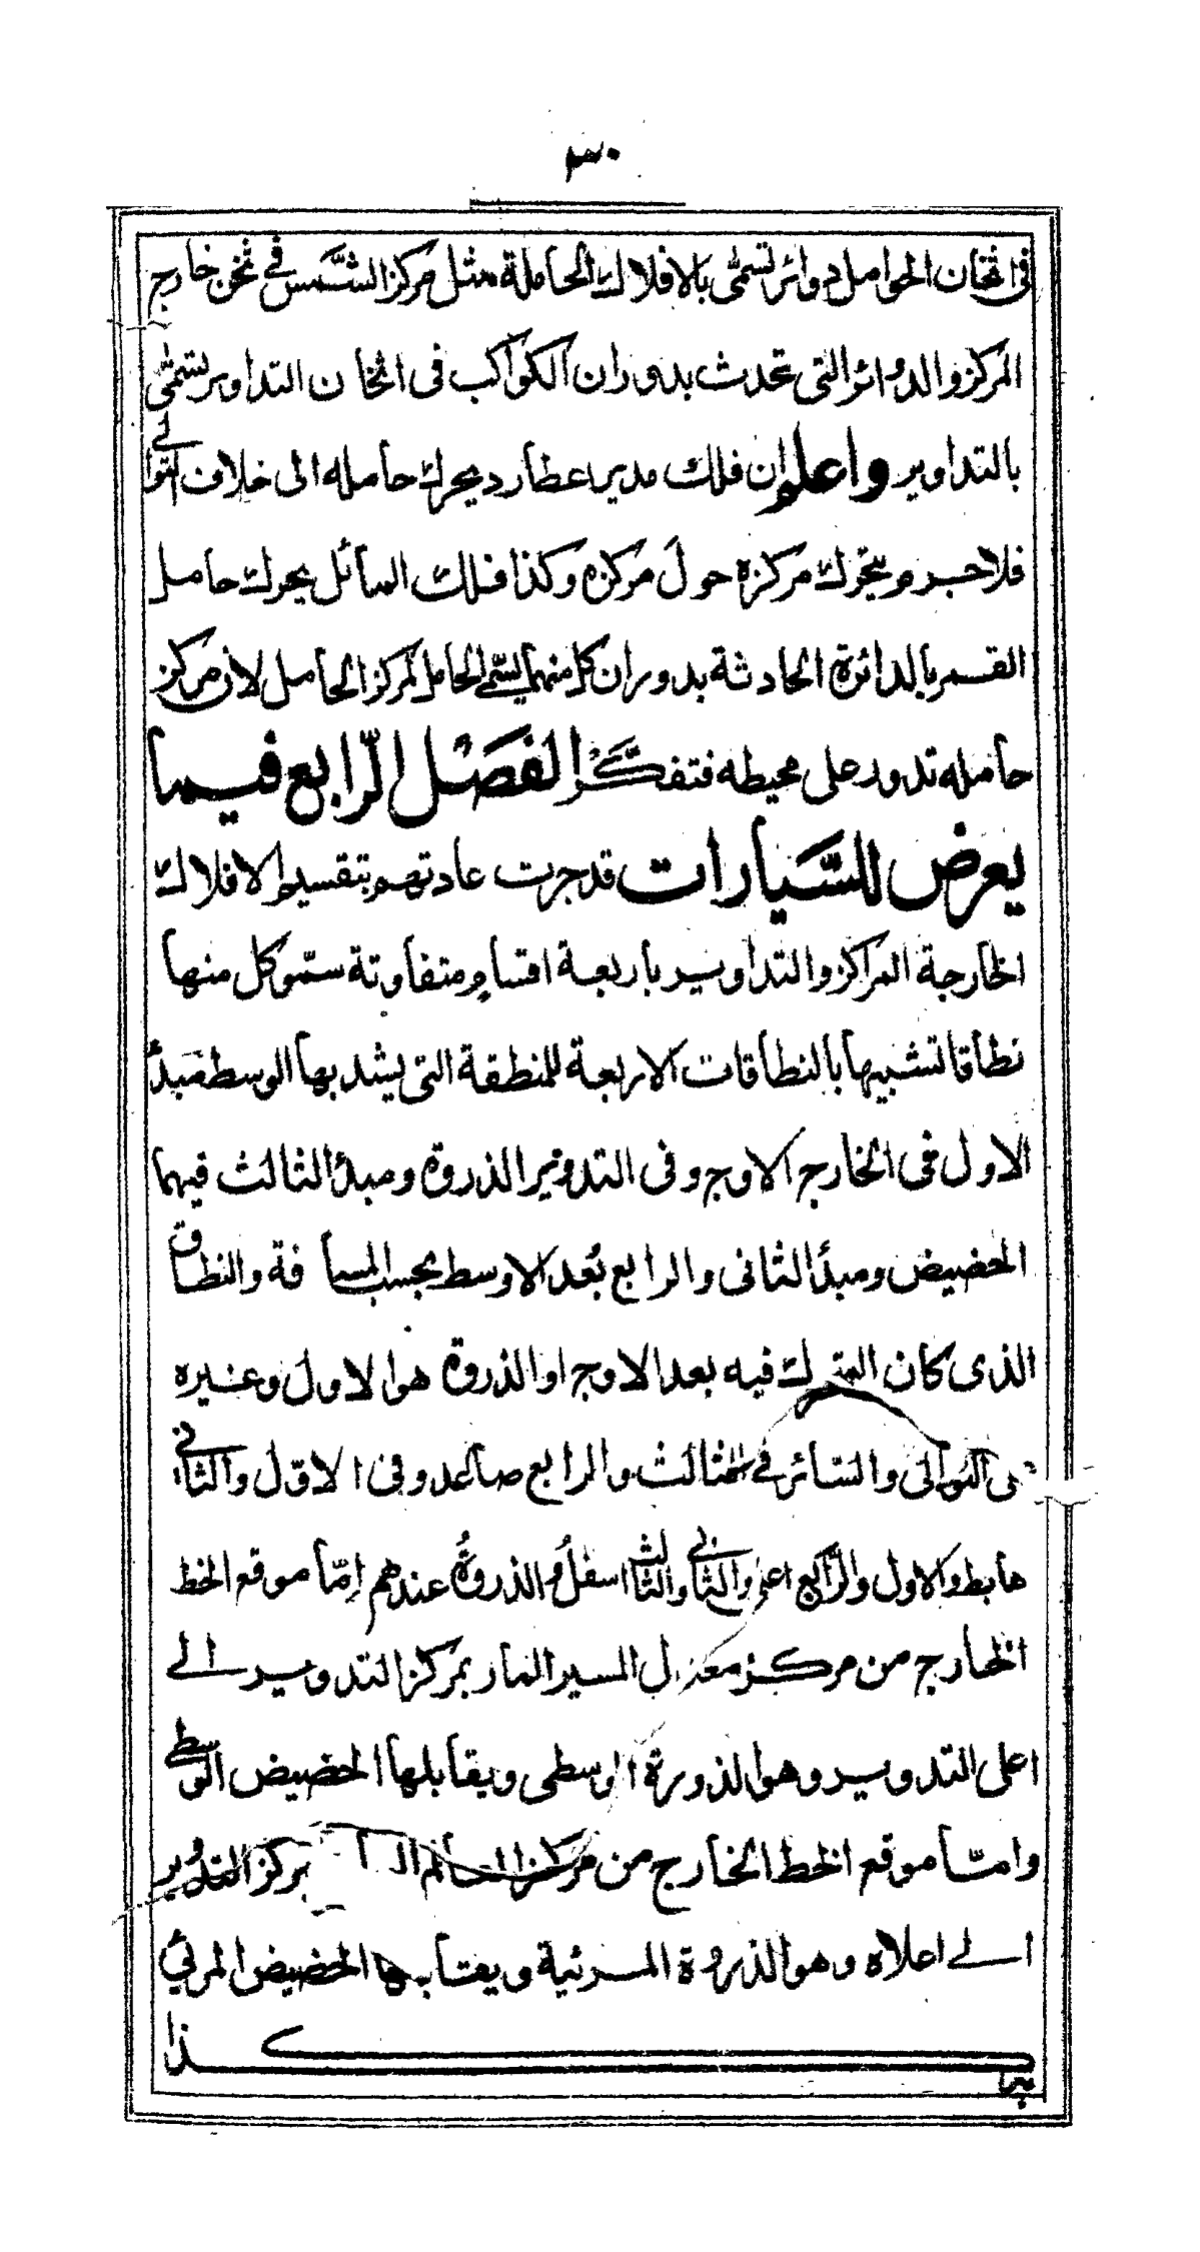 ٣٠
فى اثخان الحوامل دوائر تسمى بالافلاك الحاملة مثل مركز الشمس فى ثخن خارج
المركز والدوائر التى تحدث بدوران الكواكب فى اثخان التداوير تسمى
بالتداوير واعلم ان فلك مدير عطارد يحرك حامله الى خلاف التوالى
فلاجرم يتحرك مركزه حول مركزه وكذا فلك المائل يحرك حامل
القمر بالدائرة الحادثة بدوران كل منهما يسمى الحامل لمركز الحامل لان مركز
حامله تدور على محيطه فتفكر الفصل الرابع فيما
يعرض للسيارات قد جرت عادتهم بتقسيم الافلاك
الخارجة المراكز والتداوير باربعة اقسام متفاوتة سمو كل منها
نطاقا تشبيها بالنطاقات الاربعة للمنطقة التى يشد بها الوسط فمبدأ
الاول فى الخارج الاوج وفى التدوير الذروة ومبدأ الثالث فيهما
الحضيض ومبدأ الثانى والرابع بُعد الاوسط بحسب المسافة والنطاق
الذى كان المتحرك فيه بعد الاوج او الذروة هو الاول وغيره
على التوالى والسائر فى الثالث والرابع صاعد وفى الاول والثانى
هابط والاول والرابع اعلى والثانى والثالث اسفل والذروة عندهم إمّا موقع الخط
الخارج من مركز معدل المسير المار بمركز التدوير الى
اعلى التدوير وهو الذورة الوسطى ويقابلها الحضيض الوسطى
وامّا موقع الخط الخارج من مركز العالم بمركز التدوير
الى اعلاه وهو الذروة المرئية ويقابلها الحضيض المرئي
كذا